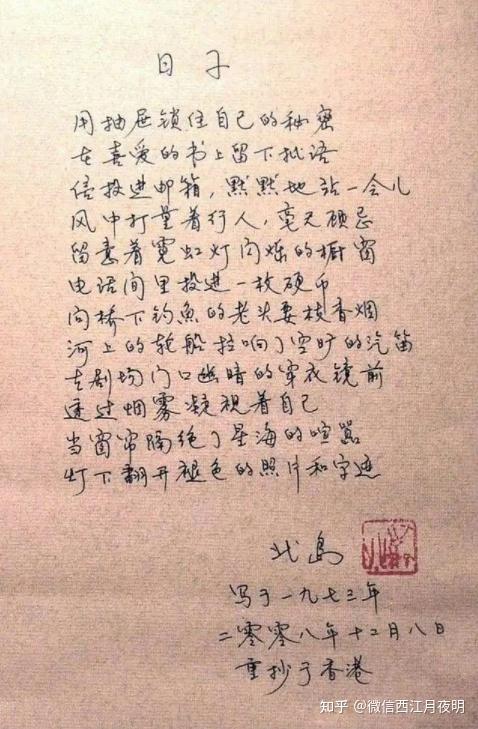 日子
用抽屉锁住自己的秘密
在喜爱的书上留下批语
信投进邮箱，默默地站一会儿
风中打量着行人，毫无顾忌
留意着霓虹灯闪烁的橱窗
电话间里投进一枚硬币
向桥下钓鱼的老头要枝香烟
河上的轮船拉响了空旷的汽笛
在剧场门口幽暗的穿衣镜前
透过烟雾凝视着自己
当窗帘隔绝了星海的喧嚣
灯下翻开褪色的照片和字迹
北岛
写于一九七三年
二零零八年十二月八日
重抄于香港
知乎 @微信西江月夜明